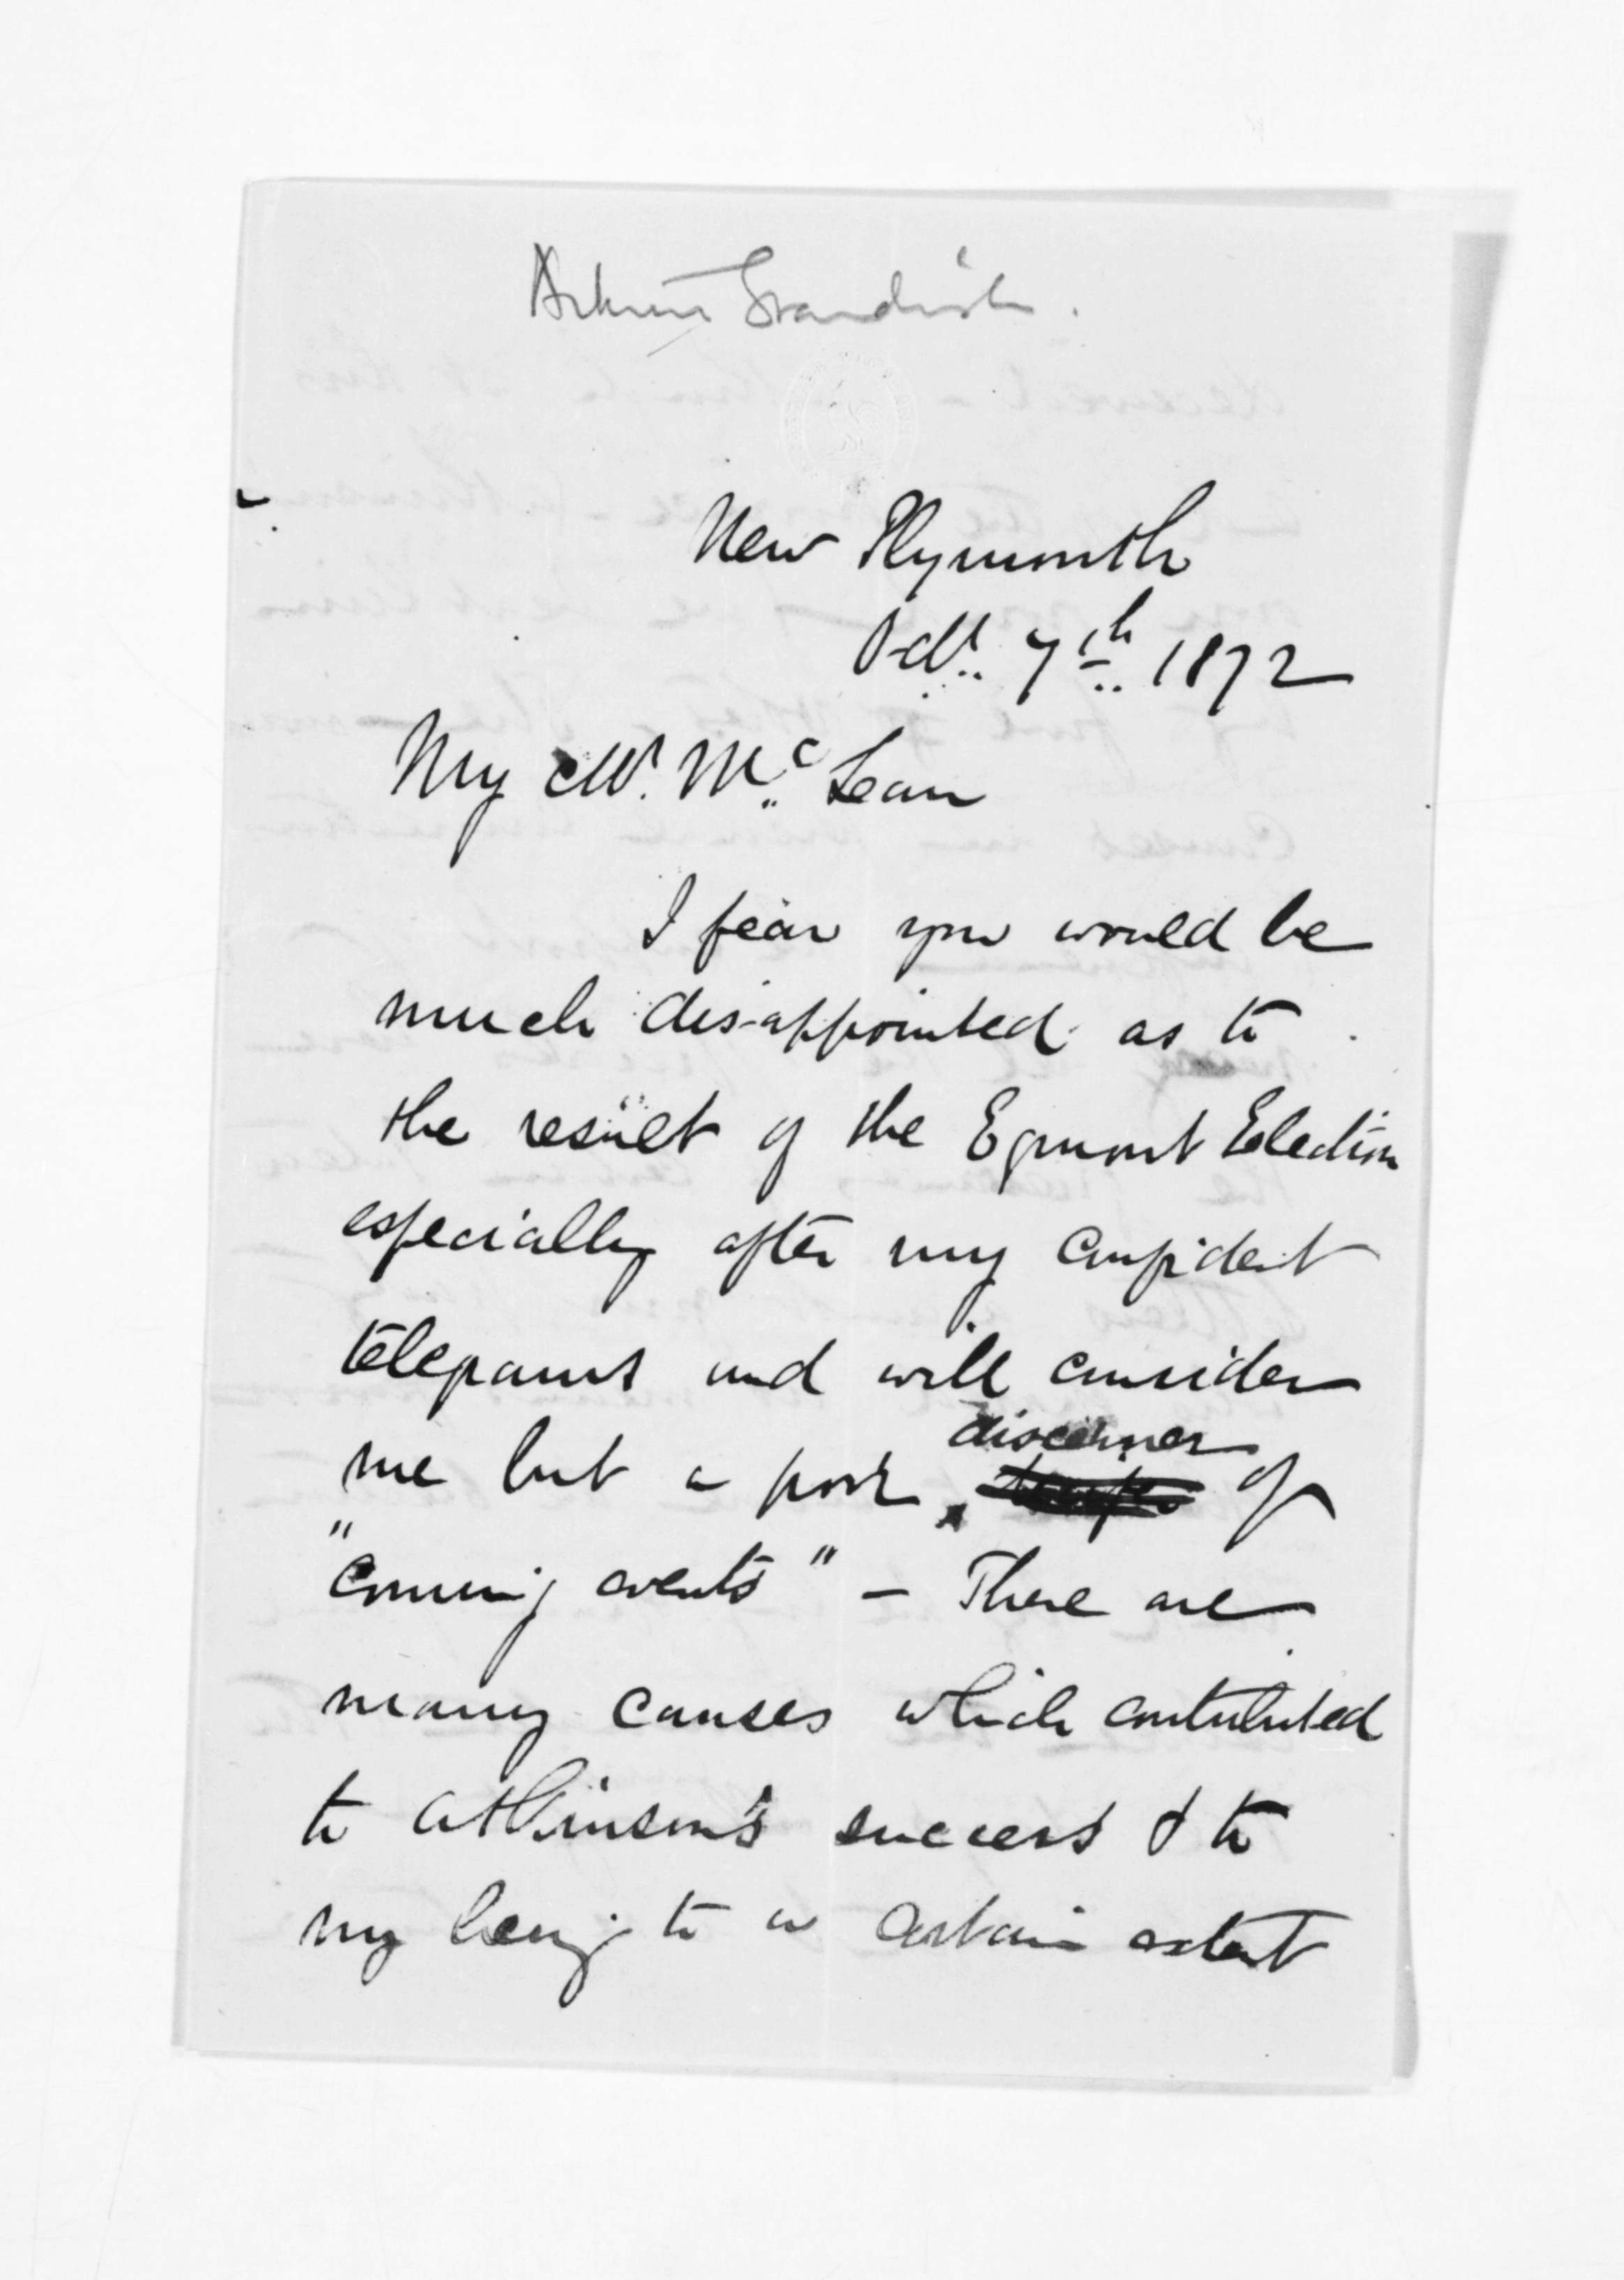 Arthur Standish.
New Plymouth
Octr. 7th. 1872
My Mr. McLean
I fear you would be
much dis-appointed as to
the result of the Egmont Election
especially after my confident
telegrams and will consider
me but a poor discerner of
"coming events" – There are
many causes which contributed
to Atkinson's success & to
my being to a certain extent